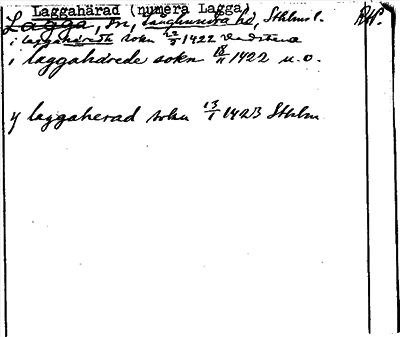 Laggahärad (numera Lagga)
Lagga, sn, Långhundra hd, Sthlms l. RAP.
i laggahæredh sokn 22/5 1422 Vadstena
i laggahärede sokn 18/11 1422 u.o.
y laggaherad sokn 13/1 1423 Sthlm